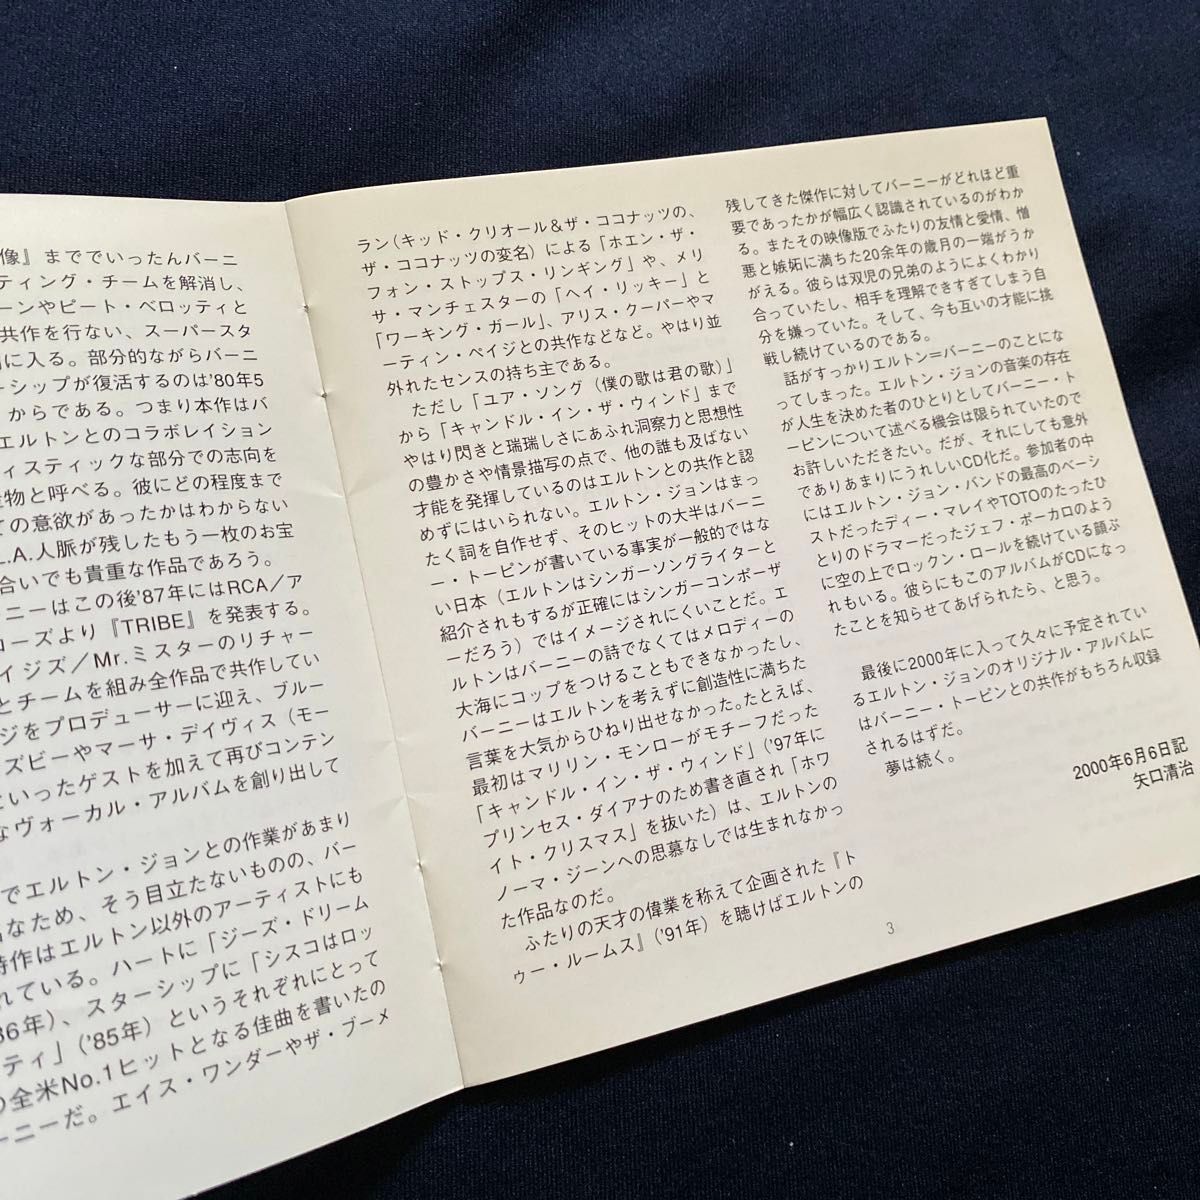 像』まででいったんバーニ
ティング・チームを解消し、
ーンやピート・ベロッティと
共作を行ない、スーパースタ
に入る。部分的ながらバーニ
ーシップが復活するのは'80年5
からである。つまり本作はバ
エルトンとのコラボレイション
ィスティックな部分での志向を
産物と呼べる。彼にどの程度まで
ての意欲があったかはわからない
L.A.人脈が残したもう一枚のお宝
合いでも貴重な作品であろう。
ニーはこの後'87年にはRCA/ア
ローズより『TRIBE』を発表する。
イジズ/Mr.ミスターのリチャー
とチームを組み全作品で共作してい
ジをプロデューサーに迎え、ブルー
ズビーやマーサ・デイヴィス(モー
といったゲストを加えて再びコンテン
なヴォーカル・アルバムを創り出して
でエルトン・ジョンとの作業があまり
なため、そう目立たないものの、バー
詩作はエルトン以外のアーティストにも
れている。ハートに「ジーズ・ドリーム
86年)、スターシップに「シスコはロッ
ティ」('85年)というそれぞれにとって
の全米No.1ヒットとなる佳曲を書いたの
ーニーだ。エイス・ワンダーやザ・ブーメ
ラン(キッド・クリオール&ザ・ココナッツの、
ザ・ココナッツの変名)による「ホエン・ザ・
フォン・ストップス・リンギング」や、メリ
サ・マンチェスターの「ヘイ・リッキー」と
「ワーキング・ガール」、アリス・クーパーやマ
ーティン・ペイジとの共作などなど。やはり並
外れたセンスの持ち主である。
ただし「ユア・ソング(僕の歌は君の歌)」
から「キャンドル・イン・ザ・ウィンド」まで
やはり閃きと瑞瑞しさにあふれ洞察力と思想性
の豊かさや情景描写の点で、他の誰も及ばない
才能を発揮しているのはエルトンとの共作と認
めずにはいられない。エルトン・ジョンはまっ
たく詞を自作せず、そのヒットの大半はバーニ
ー・トーピンが書いている事実が一般的ではな
い日本(エルトンはシンガーソングライターと
紹介されもするが正確にはシンガーコンポーザ
ーだろう)ではイメージされにくいことだ。エ
ルトンはバーニーの詩でなくてはメロディーの
大海にコップをつけることもできなかったし、
バーニーはエルトンを考えずに創造性に満ちた
言葉を大気からひねり出せなかった。たとえば、
最初はマリリン・モンローがモチーフだった
「キャンドル・イン・ザ・ウィンド」('97年に
プリンセス・ダイアナのため書き直され「ホワ
イト・クリスマス」を抜いた)は、エルトンの
ノーマ・ジーンへの思慕なしでは生まれなかっ
た作品なのだ。
ふたりの天才の偉業を称えて企画された『ト
ゥー・ルームス』('91年)を聴けばエルトンの
残してきた傑作に対してバーニーがどれほど重
要であったかが幅広く認識されているのがわか
る。またその映像版でふたりの友情と愛情、憎
悪と嫉妬に満ちた20余年の歳月の一端がうか
がえる。彼らは双児の兄弟のようによくわかり
合っていたし、相手を理解できすぎてしまう自
分を嫌っていた。そして、今も互いの才能に挑
戦し続けているのである。
話がすっかりエルトン=バーニーのことにな
ってしまった。エルトン・ジョンの音楽の存在
が人生を決めた者のひとりとしてバーニー・ト
ーピンについて述べる機会は限られていたので
お許しいただきたい。だが、それにしても意外
でありあまりにうれしいCD化だ。参加者の中
にはエルトン・ジョン・バンドの最高のベーシ
ストだったディー・マレイやTOTOのたったひ
とりのドラマーだったジェフ・ポーカロのよう
に空の上でロックン・ロールを続けている顔ぶ
れもいる。彼らにもこのアルバムがCDになっ
たことを知らせてあげられたら、と思う。
最後に2000年に入って久々に予定されてい
るエルトン・ジョンのオリジナル・アルバムに
はバーニー・トーピンとの共作がもちろん収録
されるはずだ。
夢は続く。
2000年6月6日記
矢口清治
3